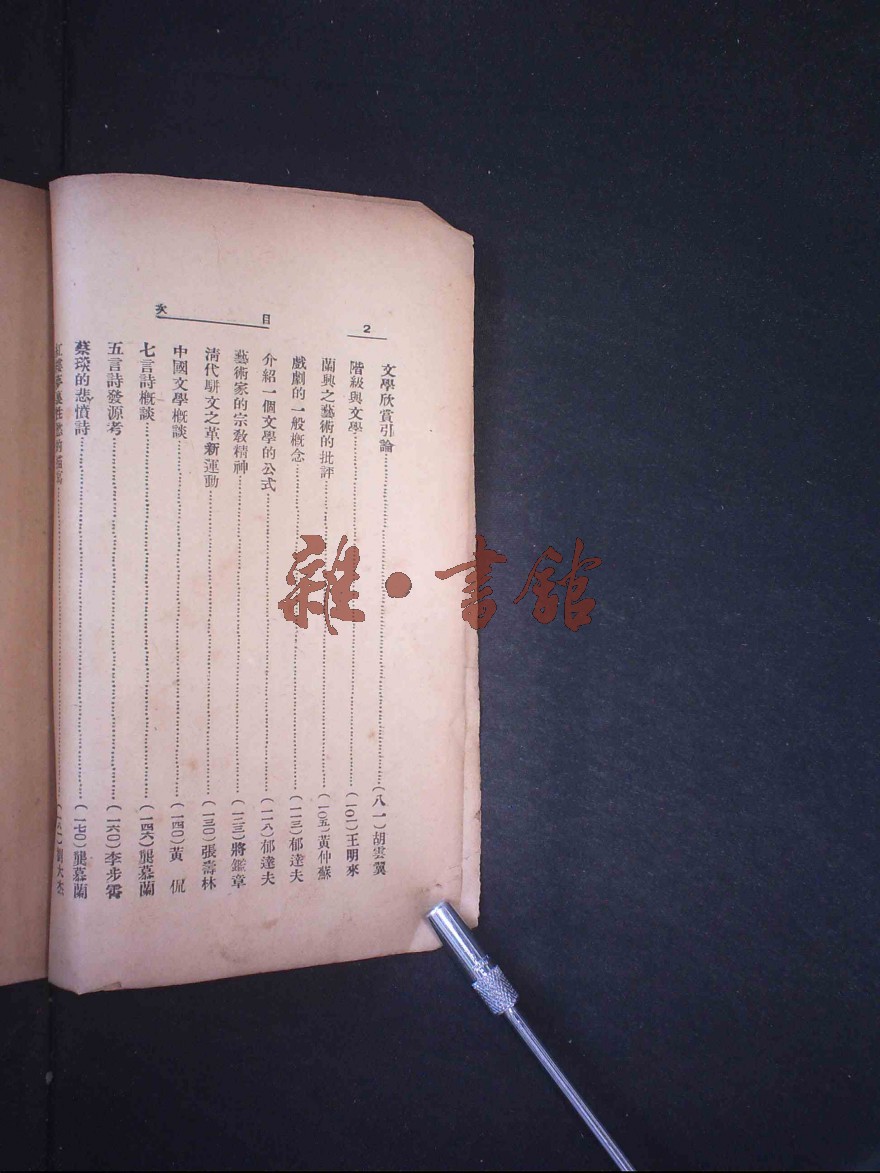 2
目次
文學欣賞引論……(八一)胡雲翼
階級與文學……(一〇一)王明來
蘭興之藝術的批評……(一〇五)黃仲蘇
戲劇的一般概念……(一一三)郁達夫
介紹一個文學的公式……(一一八)郁達夫
藝術家的宗教精神……(一二三)將鑑章
清代駢文之革新運動……(一三〇)張壽林
中國文學概談……(一四〇)黃侃
七言詩概談……(一四六)龔慕蘭
五言詩發源考……(一六〇)李步霄
蔡琰的悲憤詩……(一七〇)龔慕蘭
紅樓夢裏性慾的……(一八一)劉大杰
雜·書館